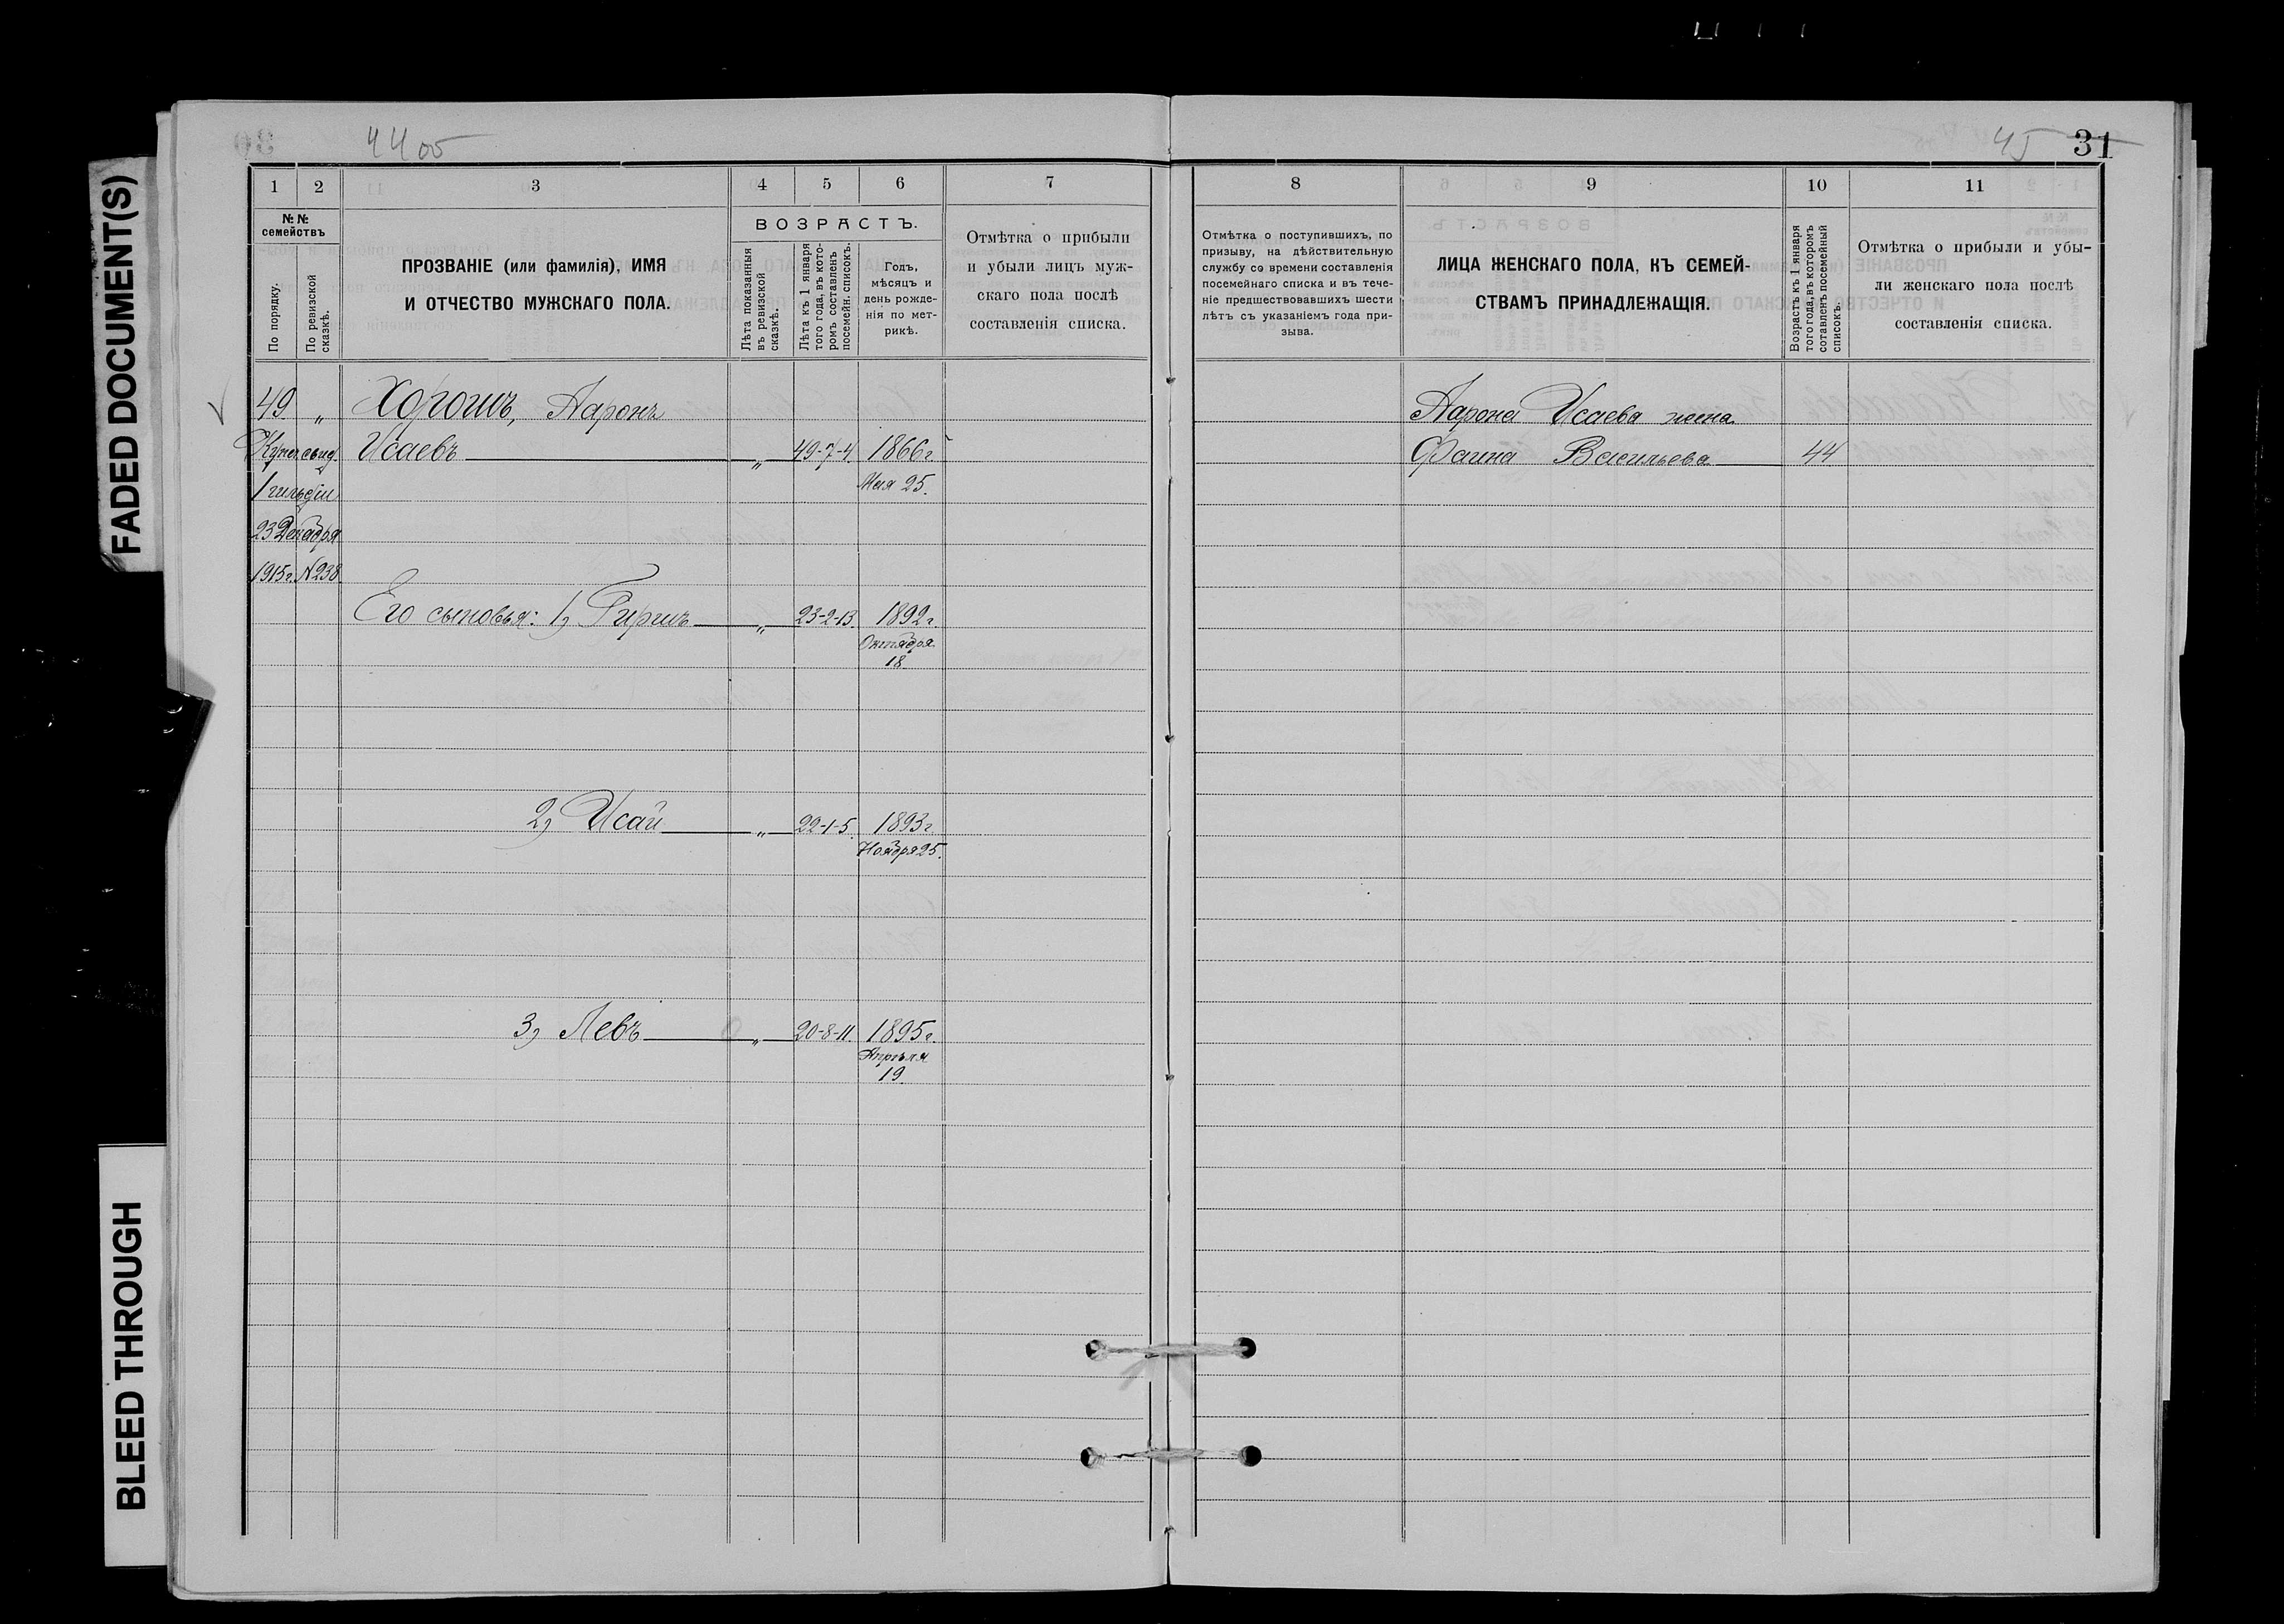 FADED DOCUMENT(S)
BLEED THROUGH
44 об
45 31
1 2 3 4 5 6 7
№ №
семействъ
По порядку.
По ревизской
сказкѣ.
ПРОЗВАНІЕ (или фамилія), ИМЯ
И ОТЧЕСТВО МУЖСКАГО ПОЛА.
ВОЗРАСТЪ.
Лѣта показанныя
въ ревизской
сказкѣ.
Лѣта къ 1 января
того года, въ кото-
ромъ составленъ
посемейн. списокъ.
Годъ,
мѣсяцъ и
день рожде-
нія по мет-
рикѣ.
Отмѣтка о прибыли
и убыли лицъ муж-
скаго пола послѣ
составленія списка.
49 „ Хорошъ, Ааронъ
Купеч. свид. Исаевъ „ 49-7-4. 1866 г.
1 гильдіи Мая 25.
23 Декабря
1915 г. № 238
Его сыновья: 1) Гиршъ „ 23-2-13. 1892 г.
Октября
18.
2) Исай „ 22-1-5. 1893 г.
Ноября 25.
3) Левъ „ 20-8-11. 1895 г.
Апрѣля
19.
8 9 10 11
Отмѣтка о поступившихъ, по
призыву, на дѣйствительную
службу со времени составленія
посемейнаго списка и въ тече-
ніе предшествовавшихъ шести
лѣтъ съ указаніемъ года при-
зыва.
ЛИЦА ЖЕНСКАГО ПОЛА, КЪ СЕМЕЙ-
СТВАМЪ ПРИНАДЛЕЖАЩІЯ.
Возрастъ къ 1 января
того года, въ которомъ
сотавленъ посемейный
списокъ.
Отмѣтка о прибыли и убы-
ли женскаго пола послѣ
составленія списка.
Аарона Исаева жена
Фаина Васильева 44